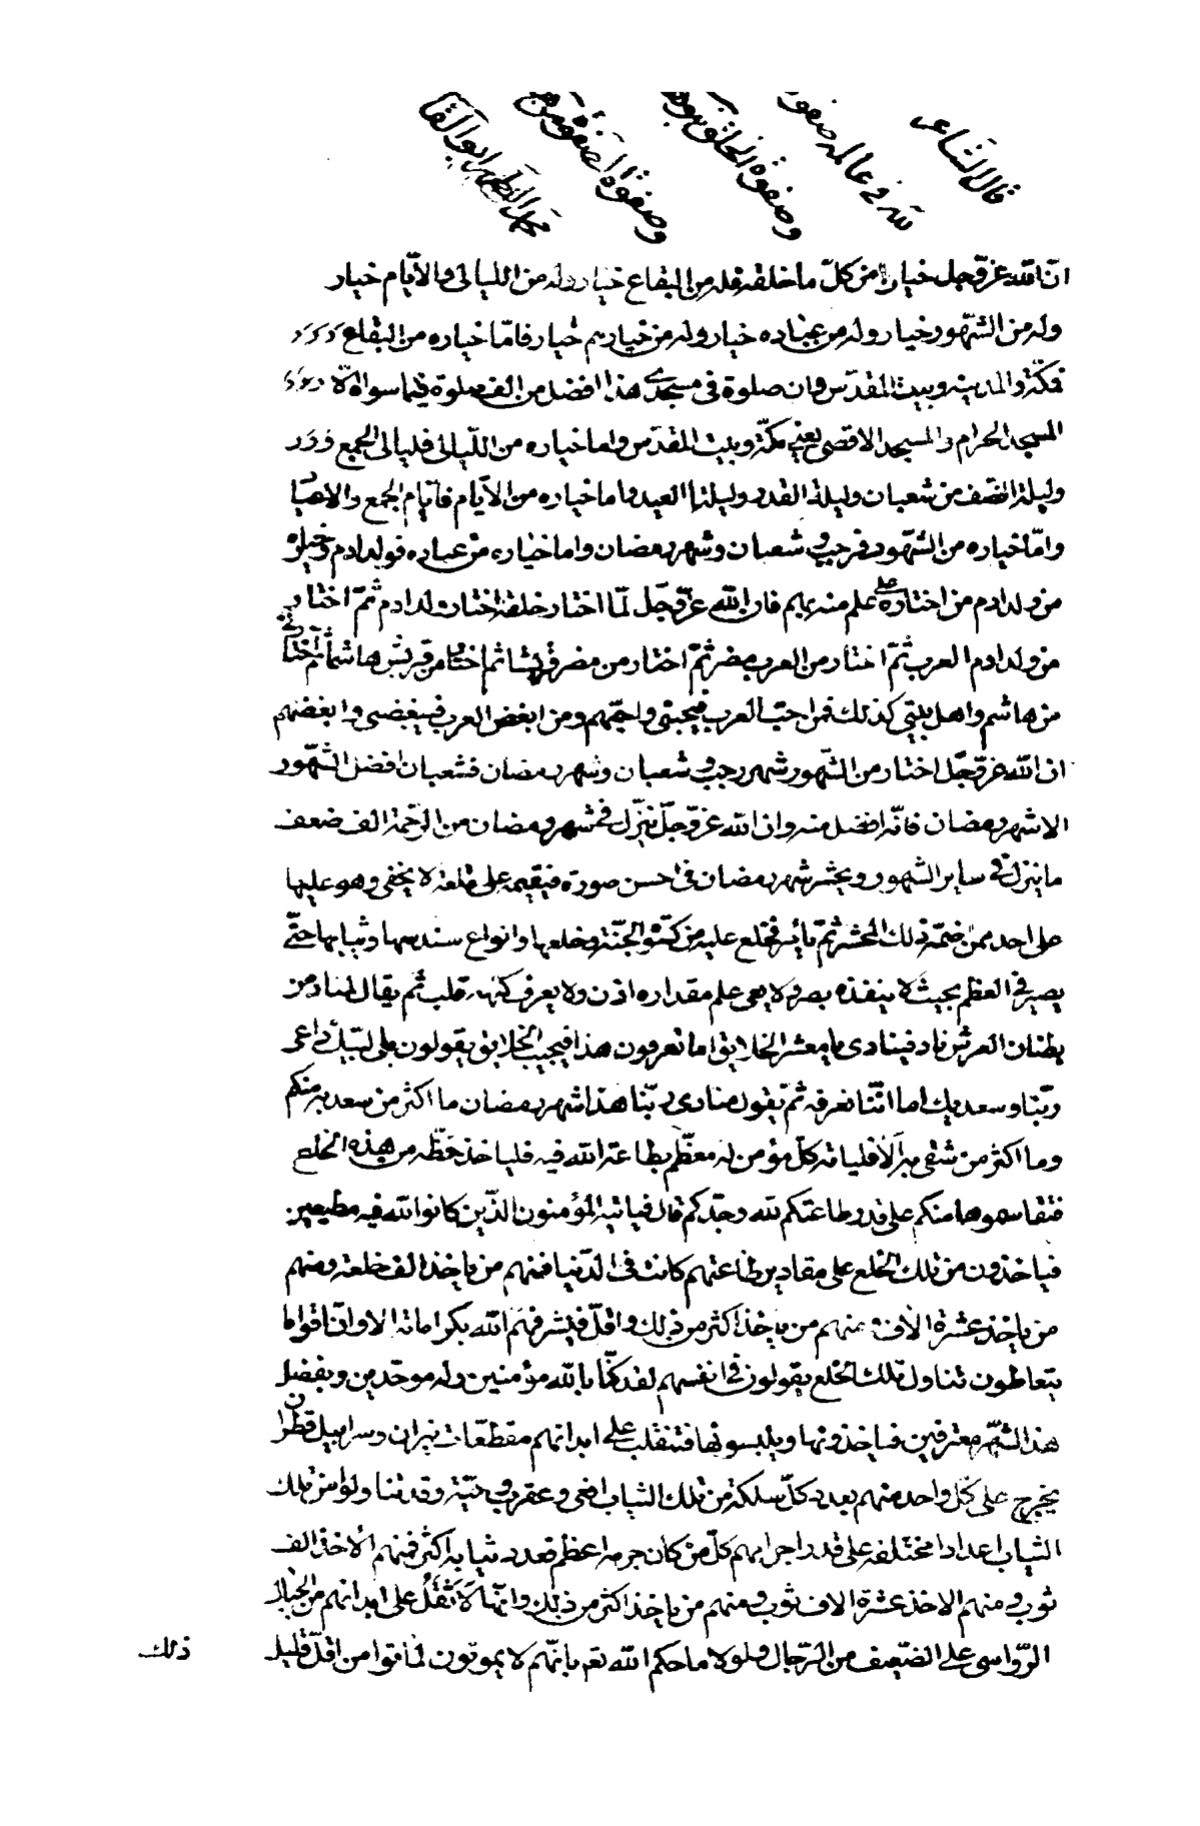 قال الشاعر
لله في عالمه صفوة
وصفوة الخلق بنو هاشم
وصفوة الصفوة من هاشم
محمد الطهر ابو القاسم
ان الله عز وجل خيارا من كل ما خلقه فله من البقاع خيار وله من الليالى والايام خيار
وله من الشهور خيار وله من عباده خيار وله من خيارهم خيار فاما خياره من البقاع
فمكة والمدينة وبيت المقدس وان صلوة في مسجدي هذا افضل من الف صلوة فيما سواه الا
المسجد الحرام والمسجد الاقصى يعني مكة وبيت المقدس واما خياره من الليالى فليالى الجمع
وليلة النصف من شعبان وليلة القدر وليلتا العيد واما خياره من الايام فايام الجمع والاعياد
واما خياره من الشهور فرجب وشعبان وشهر رمضان واما خياره من عباده فولد ادم وخياره
من ولد ادم من اختاره على علم منه بهم فان الله عز وجل لما اختار خلقه اختار ولد ادم ثم اختار
من ولد ادم العرب ثم اختار من العرب مضر ثم اختار من مضر قريشا ثم اختار من قريش هاشما ثم اختارني
من هاشم واهل بيتي كذلك فمن احب العرب فبحبى واحبهم ومن ابغض العرب فببغضى وابغضهم
ان الله عز وجل اختار من الشهور شهر رجب وشعبان وشهر رمضان فشعبان افضل الشهور
الا شهر رمضان فانه افضل منه وان الله عز وجل ينزل في شهر رمضان من الرحمة الف ضعف
ما ينزل في ساير الشهور ويحشر شهر رمضان في احسن صورة فيقيمه على قلعة لا يخفى وهو عليها
على احد ممن ضمه ذلك المحشر ثم يأمر فيخلع عليه من كسوة الجنة وخلعها وانواع سندسها وثيابها حتى
يصير في العظم بحيث لا ينفذه بصر ولا يعى علم مقداره اذن ولا يعرف كنهه قلب ثم يقال لمناد من
بطنان العرش ناد فينادى يا معشر الخلايق اما تعرفون هذا فيجيب الخلايق يقولون بلى لبيك داعى
ربنا وسعديك اما اننا نعرفه ثم يقول منادى ربنا هذا شهر رمضان ما اكثر من سعد به منكم
وما اكثر من شقى به الا فلياته كل مؤمن له معظم بطاعة الله فيه فلياخذ حظه من هذه الخلع
فتقاسموها منكم على قدر طاعتكم لله وجدكم قال فياتيه المؤمنون الذين كانوا لله فيه مطيعين
فياخذون من تلك الخلع على مقادير طاعتهم كانت في الدنيا فمنهم من ياخذ الف خلعة ومنهم
من ياخذ عشرة الاف ومنهم من ياخذ اكثر من ذلك واقل فيشرفهم الله بكراماته الا وان اقواما
يتعاطون تناول تلك الخلع يقولون في انفسهم لقد كنا بالله مؤمنين وله موحدين وبفضل
هذا الشهر معترفين فياخذونها ويلبسونها فتنقلب على ابدانهم مقطعات نيران وسرابيل قطران
يخرج على كل واحد منهم بعدد كل سلكة من تلك الثياب افعى وعقرب وحية وقد تناولوا من تلك
الثياب اعدادا مختلفة على قدر اجرامهم كل من كان جرمه اعظم فعدد ثيابه اكثر فمنهم الاخذ الف
ثوب ومنهم الاخذ عشرة الاف ثوب ومنهم من ياخذ اكثر من ذلك وانها لاثقل على ابدانهم من الجبال
الرواسى على الضعيف من الرجال ولولا ما حكم الله تع بانهم لا يموتون لماتوا من اقل قليل
ذلك